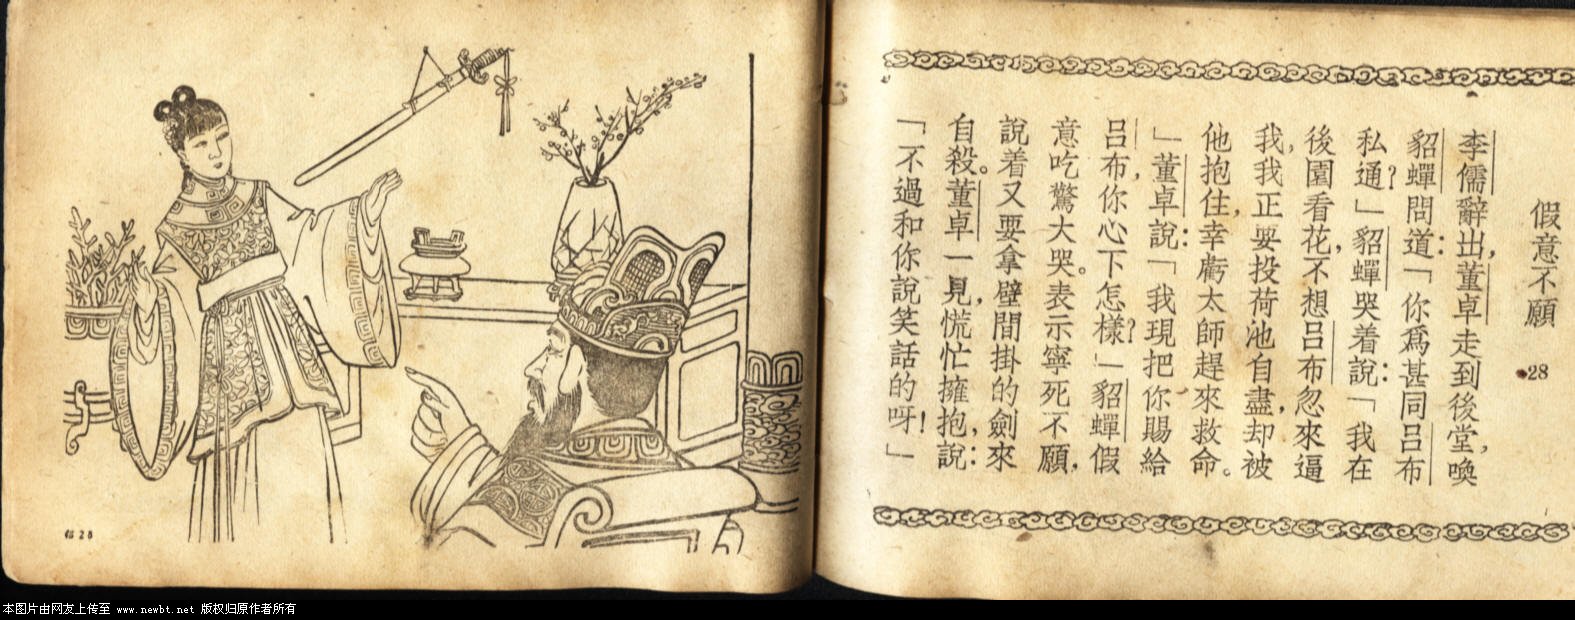 假意不願 28
李儒辭出，董卓走到後堂，喚
貂蟬問道：「你爲甚同呂布
私通？」貂蟬哭着說：「我在
後園看花，不想呂布忽來逼
我，我正要投荷池自盡，却被
他抱住，幸虧太師趕來救命。
」董卓說：「我現把你賜給
呂布，你心下怎樣？」貂蟬假
意吃驚大哭。表示寧死不願，
說着又要拿壁間掛的劍來
自殺。董卓一見，慌忙擁抱，說：
「不過和你說笑話的呀！」
28
本图片由网友上传至 www.newbt.net 版权归原作者所有